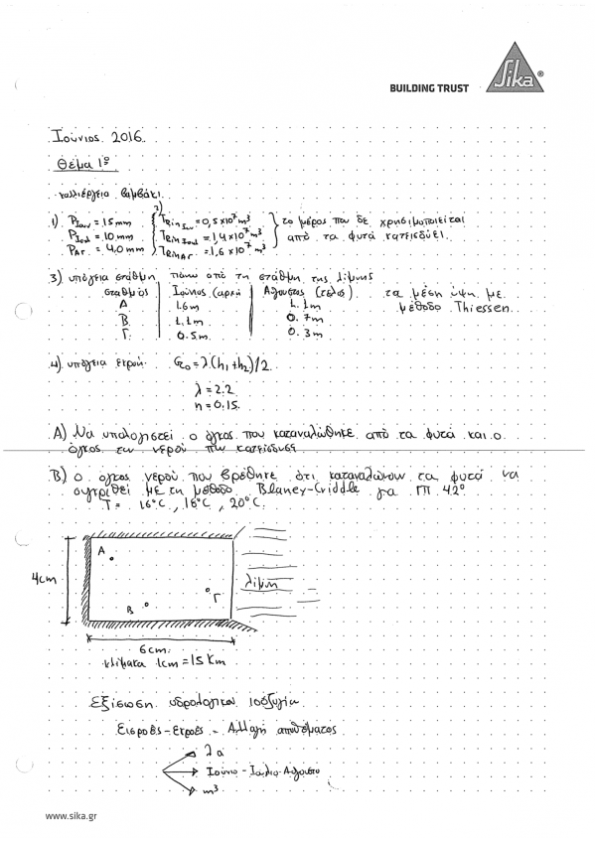 BUILDING TRUST
Sika®
Ιούνιος 2016.
Θέμα 1º
καλλιέργεια βαμβάκι.
1) P_Ιουν = 15 mm
P_Ιουλ = 10 mm
P_Αυγ = 40 mm
2) I_RIN Ιουν = 0,5x10⁷ m³
I_RIN Ιουλ = 1,4x10⁷ m³
I_RIN Αυγ = 1,6x10⁷ m³
το μέρος που δε χρησιμοποιείται
από τα φυτά κατεισδύει.
3) υπόγεια στάθμη πάνω από τη στάθμη της λίμνης
σταθμός Ιούνιος (αρχή) Αύγουστος (τέλος) τα μέση υψη με
Α 1.6m 1.1m μέθοδο Thiessen
Β 1.1m 0.7m
Γ 0.5m 0.3m
4) υπόγεια εκροή G₀ = λ(h₁+h₂)/2
λ = 2.2
n = 0.15
Α) Να υπολογιστεί ο όγκος που καταναλώθηκε από τα φυτά και ο
όγκος του νερού που κατείσδυσε
Β) ο όγκος νερού που βρέθηκε ότι καταναλώνουν τα φυτά να
συγκριθεί με τη μέθοδο Blaney-Criddle για ΓΠ 42°
T = 16°C, 18°C, 20°C.
Α
4cm
λίμνη
Γ
Β
6cm
κλίμακα 1cm = 15 Km
Εξίσωση υδρολογικού ισοζυγίου
Εισροές - Εκροές = Αλλαγή αποθέματος
λα
Ιούνιο - Ιούλιο - Αύγουστο
m³
www.sika.gr